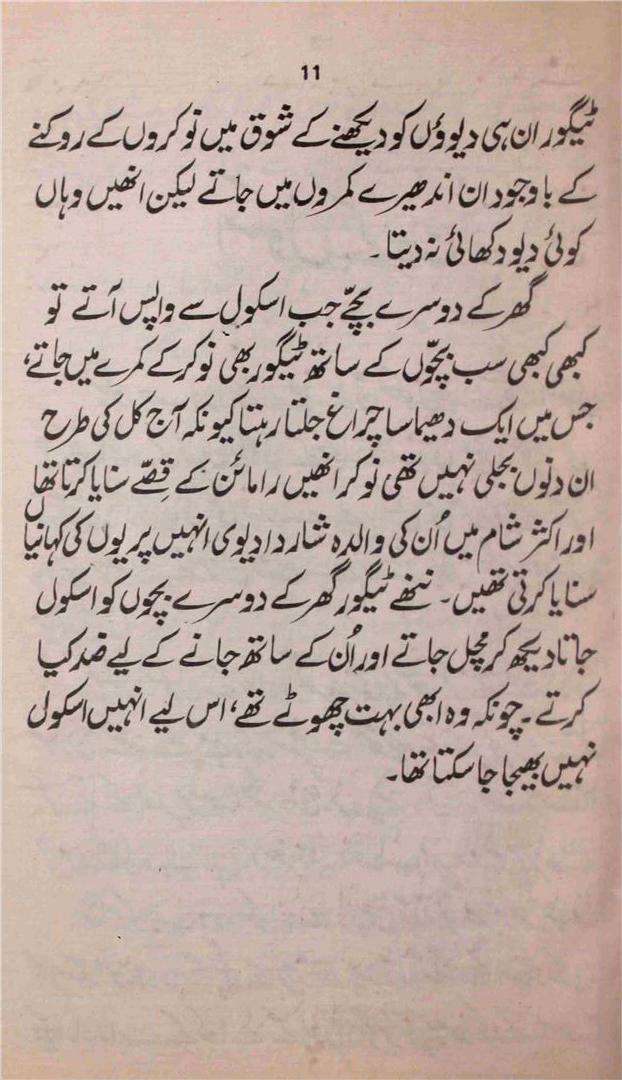 11
ٹیگور ان ہی دیوؤں کو دیکھنے کے شوق میں نوکروں کے روکنے
کے باوجود ان اندھیرے کمروں میں جاتے لیکن انھیں وہاں
کوئی دیو دکھائی نہ دیتا۔
گھر کے دوسرے بچّے جب اسکول سے واپس آتے تو
کبھی کبھی سب بچّوں کے ساتھ ٹیگور بھی نوکر کے کمرے میں جاتے،
جس میں ایک دھیما سا چراغ جلتا رہتا کیونکہ آج کل کی طرح
ان دنوں بجلی نہیں تھی نوکر انھیں رامائن کے قصّے سنایا کرتا تھا
اور اکثر شام میں اُن کی والدہ شاردا دیوی انہیں پریوں کی کہانیاں
سنایا کرتی تھیں۔ ننھے ٹیگور گھر کے دوسرے بچوں کو اسکول
جاتا دیکھ کر مچل جاتے اور اُن کے ساتھ جانے کے لیے ضد کیا
کرتے۔ چونکہ وہ ابھی بہت چھوٹے تھے، اس لیے انہیں اسکول
نہیں بھیجا جا سکتا تھا۔